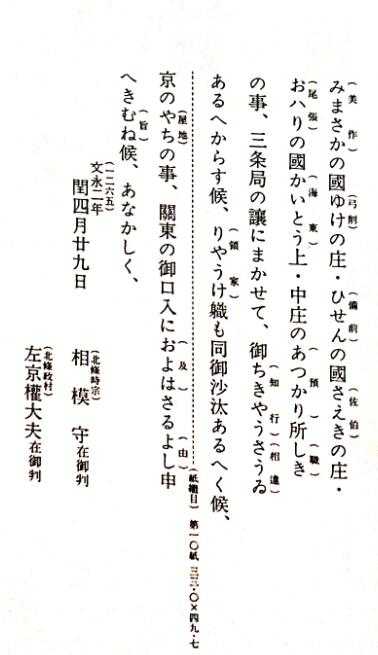 （美作）（弓削）（備前）（佐伯）
みまさかの國ゆけの庄・ひせんの國さえきの庄・
（尾張）（海東）（預）（職）
おハりの國かいとう上・中庄のあつかり所しき
（知行）（相違）
の事、三条局の讓にまかせて、御ちきやうさうゐ
（領家）
あるへからす候、りやうけ軄も同御沙汰あるへく候、
（紙繼目）第一〇紙 三三・〇×四九・七
（屋地）（及）（由）
京のやちの事、關東の御口入におよはさるよし申
（旨）
へきむね候、あなかしく、
（一二六五）
文永二年
閏四月廿九日
（北條時宗）
相模守在御判
（北條政村）
左京權大夫在御判